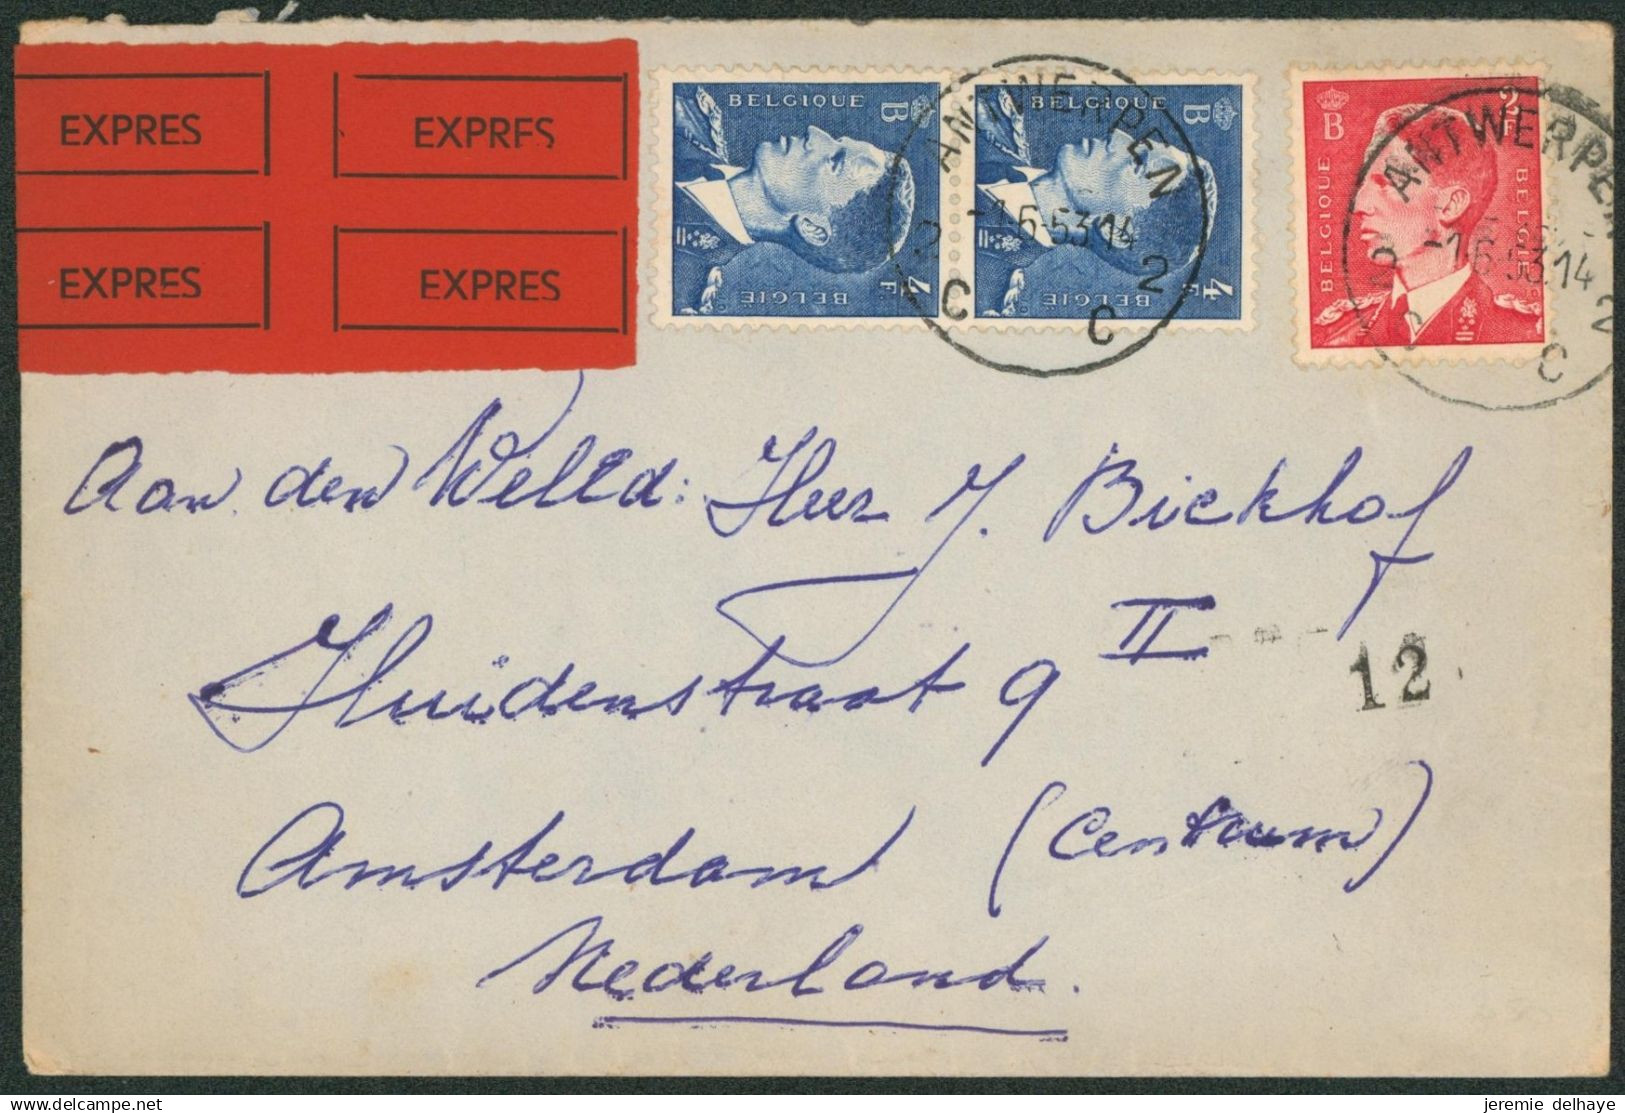 EXPRES EXPRES
EXPRES EXPRES
BELGIQUE B 4F. BELGIË
BELGIQUE B 4F. BELGIË
B 2F BELGIQUE BELGIE
ANTWERPEN
-1.6-53.14
2 C C 2
ANTWERPEN
-1.6-53.14
C 2
Aan den WelEd: Heer J. Bickhof
Huidenstraat 9 II
12
Amsterdam (Centrum)
Nederland.
jeremie delhaye